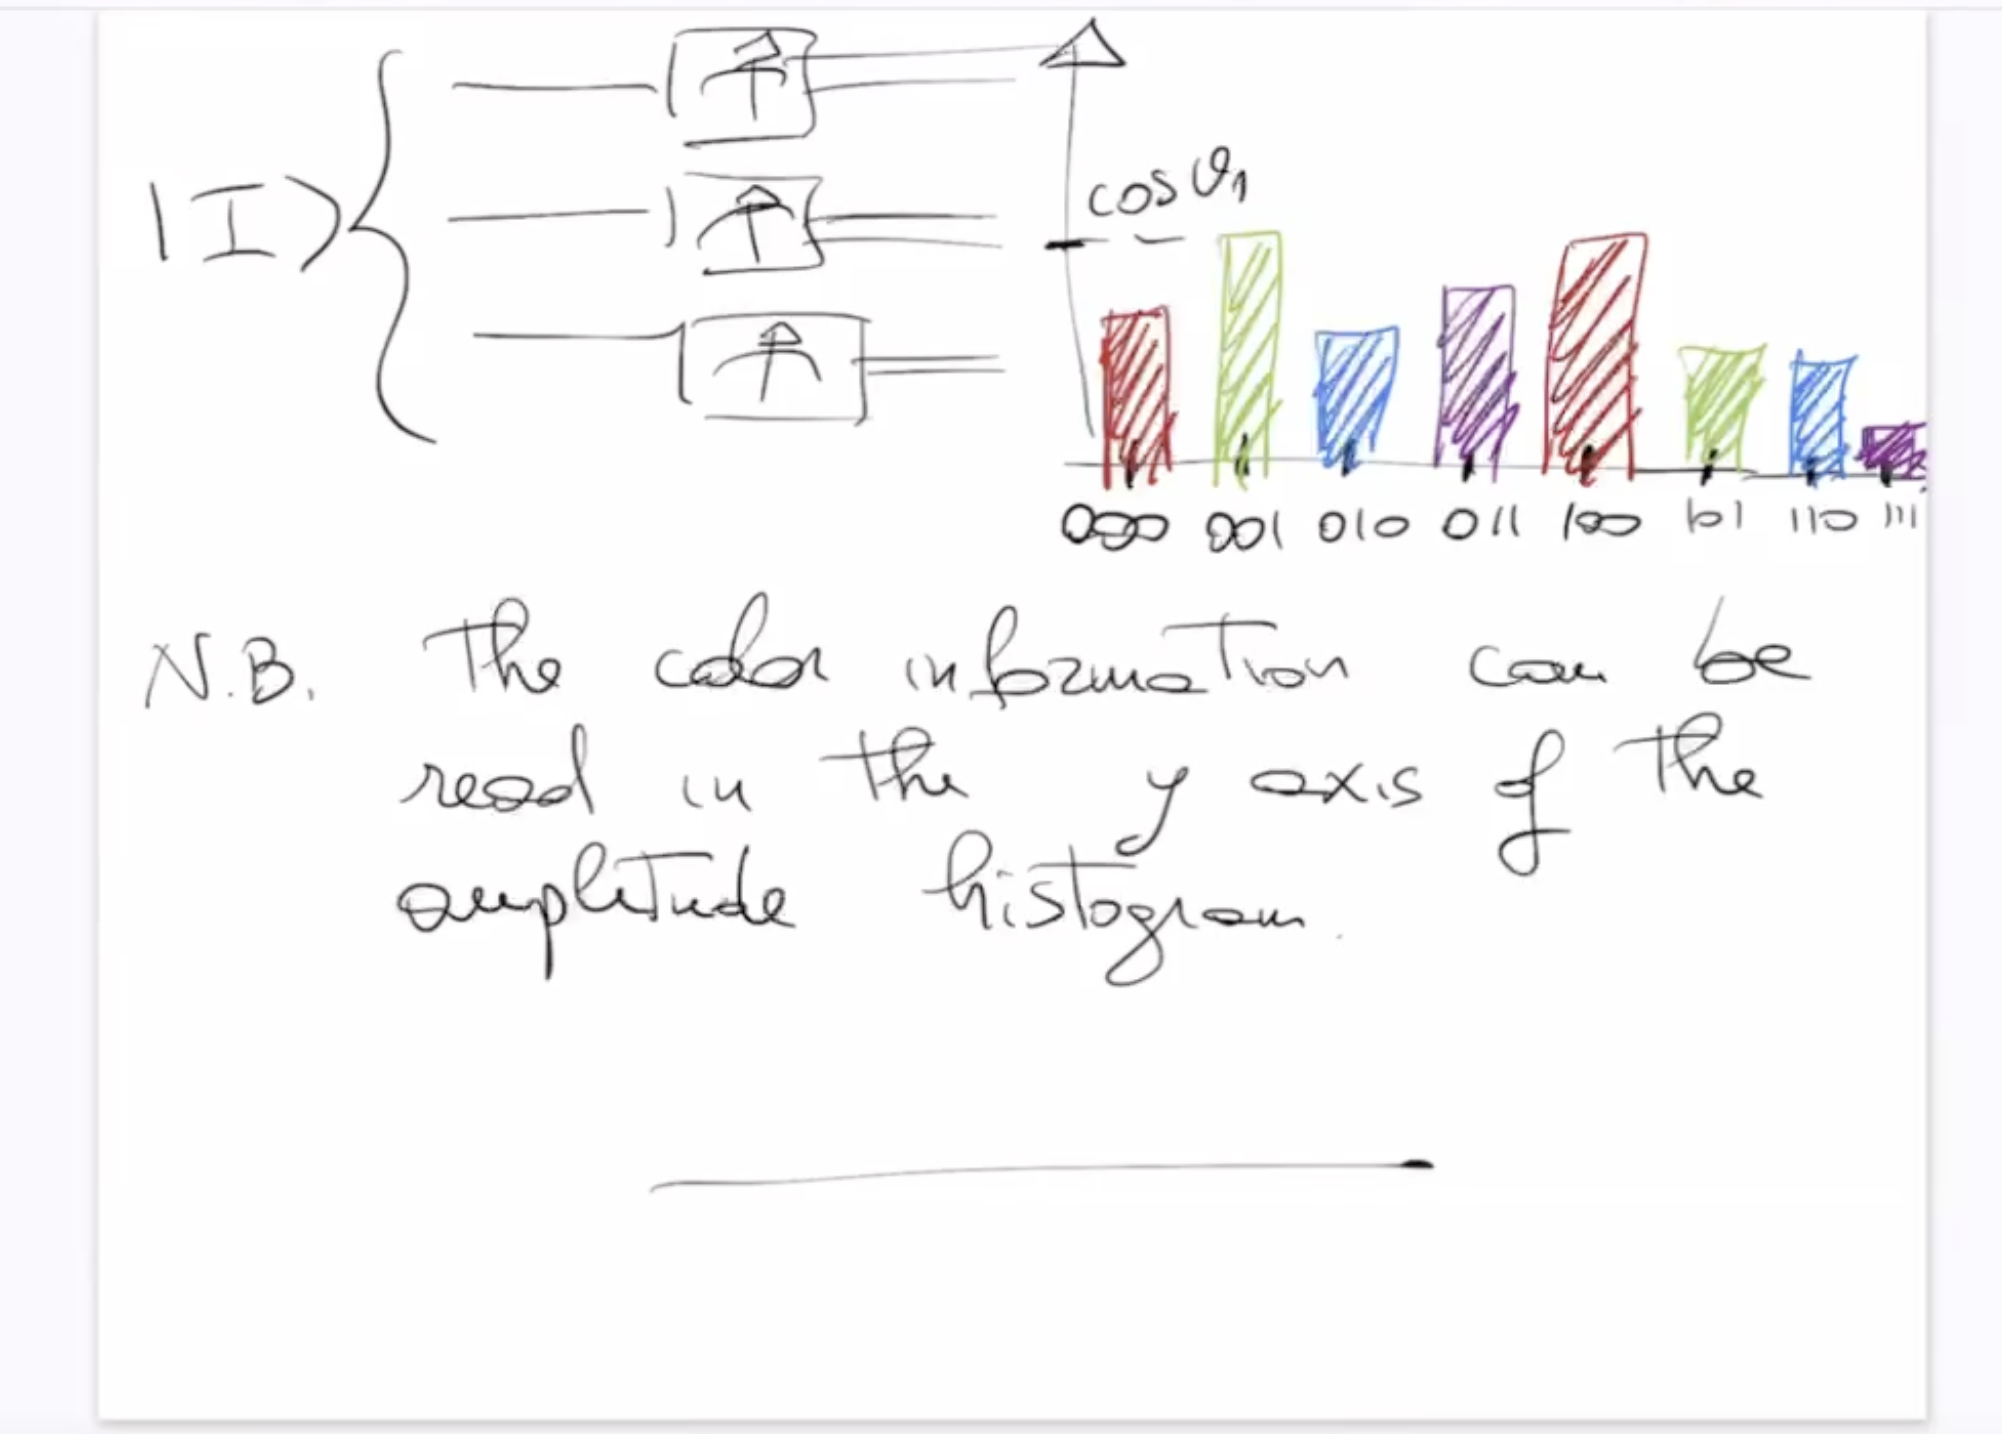 |I⟩
cos θ₁
000 001 010 011 100 101 110 111
N.B. The color information can be
read in the y axis of the
amplitude histogram.